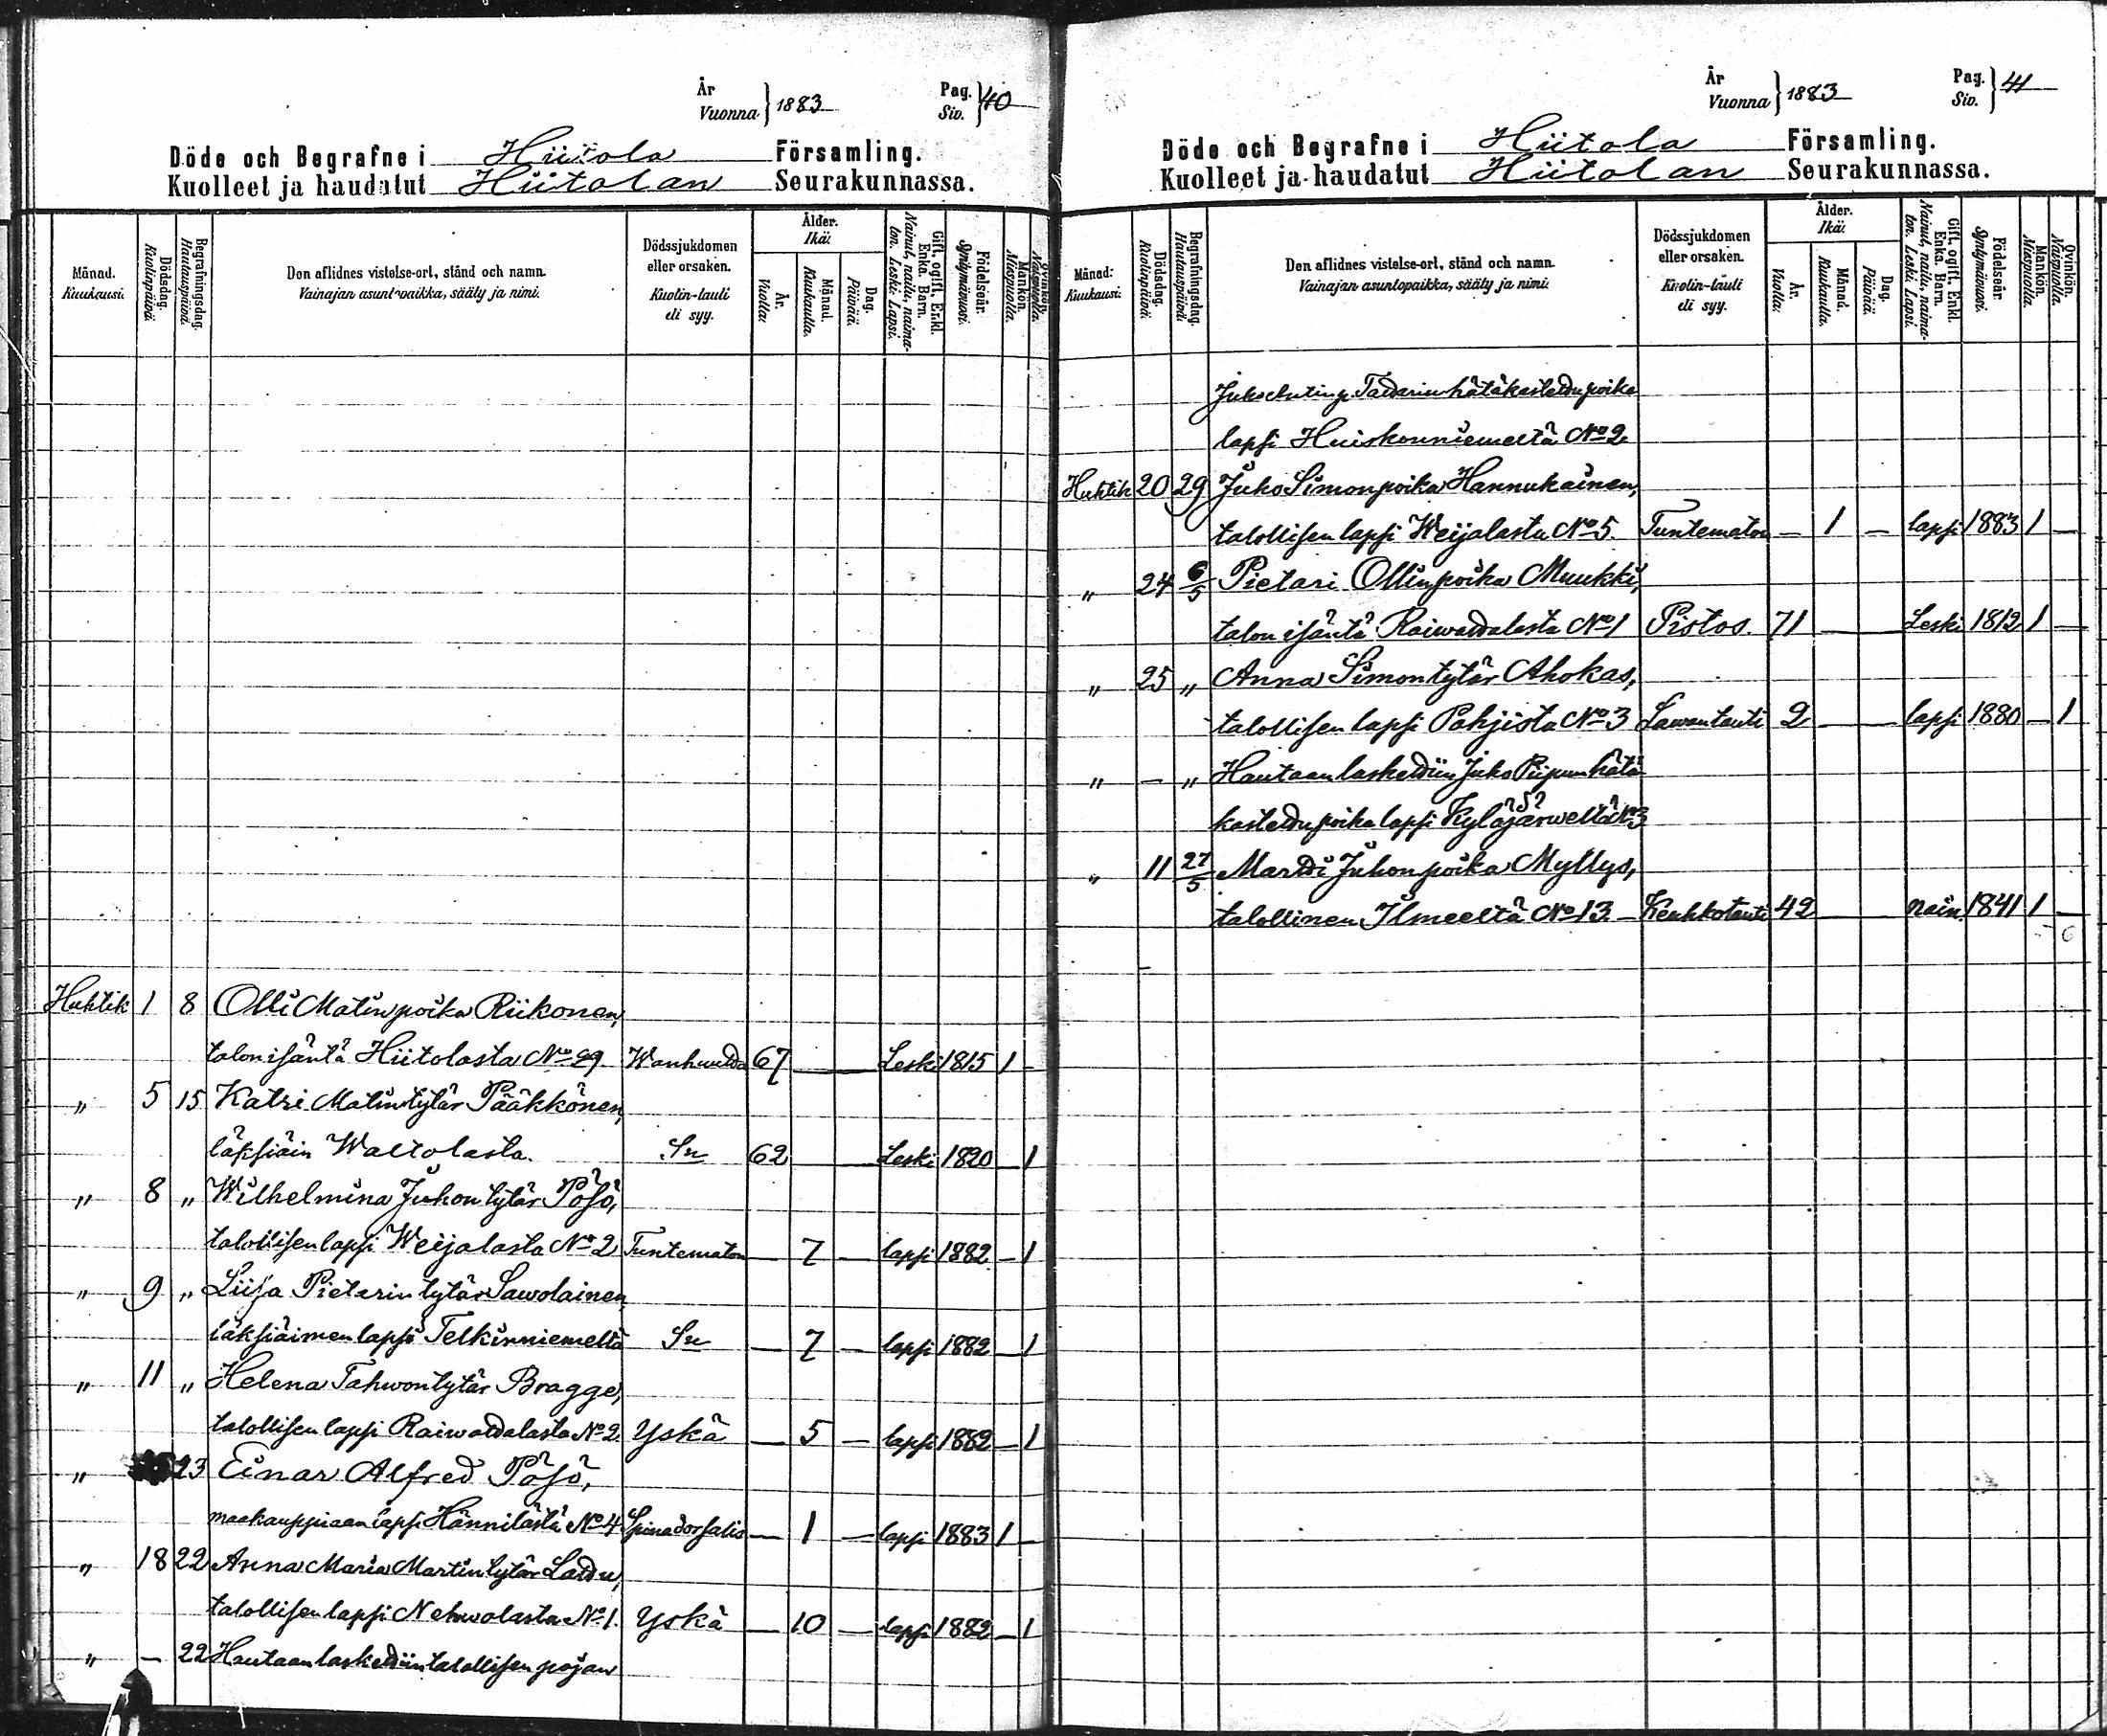 År
Vuonna } 1883
Pag.
Siv. } 40
Döde och Begrafne i Hiitola Församling.
Kuolleet ja haudatut Hiitolan Seurakunnassa.
Månad. Kuukausi.
Dödsdag. Kuolinpäivä.
Begrafningsdag. Hautauspäivä.
Den aflidnes vistelse-ort, stånd och namn.
Vainajan asuntopaikka, sääty ja nimi.
Dödssjukdomen eller orsaken.
Kuolin-tauti eli syy.
Ålder. Ikä.
År. Vuotta.
Månad. Kuukautta.
Dag. Päivää.
Gift, ogift, Enkl. Enka. Barn.
Nainut, naitu, naimaton. Leski. Lapsi.
Födelseår. Syntymävuosi.
Mankön. Miespuolta.
Qvinkön. Naispuolta.
Huhtik 1 8 Olli Matinpoika Riikonen,
talon isäntä Hiitolasta No 29. Wanhuus 67 Leski 1815 1 —
" 5 15 Katri Matintytär Pääkkönen,
läksiäin Waltolasta. Sn 62 Leski 1820 — 1
" 8 " Wilhelmina Juhontytär Pösö,
talollisen lapsi Weijalasta No 2 Tuntematon — 7 — lapsi 1882 — 1
" 9 " Liisa Pietarintytär Sawolainen,
läksiäimen lapsi Telkinniemeltä Sn — 7 — lapsi 1882 — 1
" 11 " Helena Tahwontytär Bragge,
talollisen lapsi Raiwattalasta No 2. Yskä — 5 — lapsi 1882 — 1
" 23 Einar Alfred Pösö,
maakauppiaan lapsi Hännilästä No 4 Spina dorsalis — 1 — lapsi 1883 1 —
" 18 22 Anna Maria Martintytär Lattu,
talollisen lapsi Nehwolasta No 1. Yskä — 10 — lapsi 1882 — 1
" — 22 Hautaan laskettiin talollisen pojan
År
Vuonna } 1883
Pag.
Siv. } 41
Döde och Begrafne i Hiitola Församling.
Kuolleet ja haudatut Hiitolan Seurakunnassa.
Månad. Kuukausi.
Dödsdag. Kuolinpäivä.
Begrafningsdag. Hautauspäivä.
Den aflidnes vistelse-ort, stånd och namn.
Vainajan asuntopaikka, sääty ja nimi.
Dödssjukdomen eller orsaken.
Kuolin-tauti eli syy.
Ålder. Ikä.
År. Vuotta.
Månad. Kuukautta.
Dag. Päivää.
Gift, ogift, Enkl. Enka. Barn.
Nainut, naitu, naimaton. Leski. Lapsi.
Födelseår. Syntymävuosi.
Mankön. Miespuolta.
Qvinkön. Naispuolta.
Juho Antinp. hätäkastettu poika
lapsi Huiskonniemeltä No 2.
Huhtik 20 29 Juho Simonpoika Hannukainen,
talollisen lapsi Weijalasta No 5. Tuntematon — 1 — lapsi 1883 1 —
" 24 6/5 Pietari Ollinpoika Muukki,
talon isäntä Raiwattalasta No 1 Pistos. 71 Leski 1812 1 —
" 25 " Anna Simontytär Ahokas,
talollisen lapsi Pohjista No 3 Lawantauti 2 lapsi 1880 — 1
" — " Hautaan laskettiin Juho Piipun hätä
kastettu poika lapsi Kyläjärweltä No 3
" 11 27/5 Martti Juhonpoika Myllys,
talollinen Ilmeeltä No 13. Keuhkotauti 42 nain. 1841 1 —
6